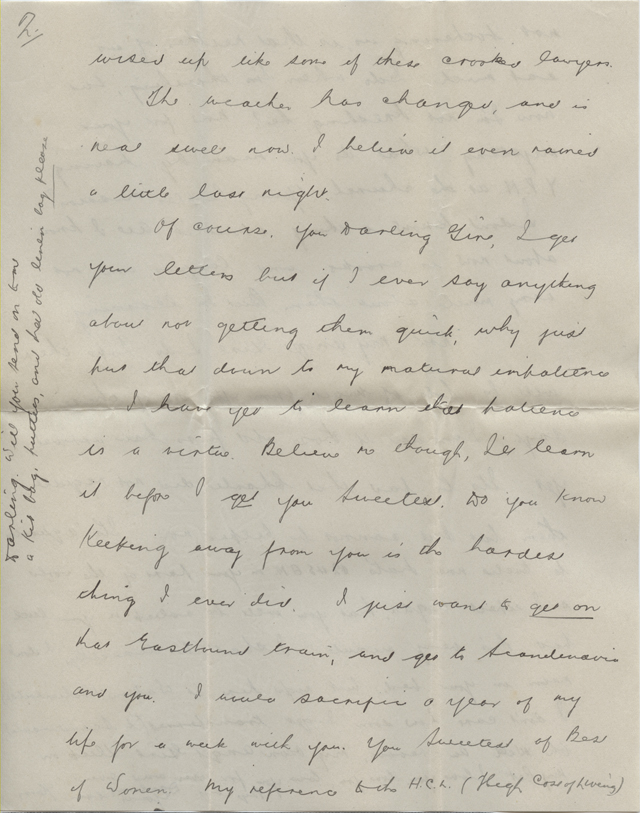 2/
wised up like some of these crooked lawyers.
The weather has changed, and is
real swell now. I believe it even rained
a little last night.
Of course, you Darling Girl, I get
your letters but if I ever say anything
about not getting them quick, why just
put that down to my natural impatience
I have yet to learn that patience
is a virtue. Believe me though, I'll learn
it before I get you Sweetest. Do you know
Keeking away from you is the hardest
thing I ever did. I just want to get on
that Eastbound train, and get to Scandinavia
and you. I would sacrifice a year of my
life for a week with you. You Sweetest of Best
of Women. My reference to the H.C.L. (High Cost of Living)
Darling. Will you send on
a Kit bag, and that old linen bag please